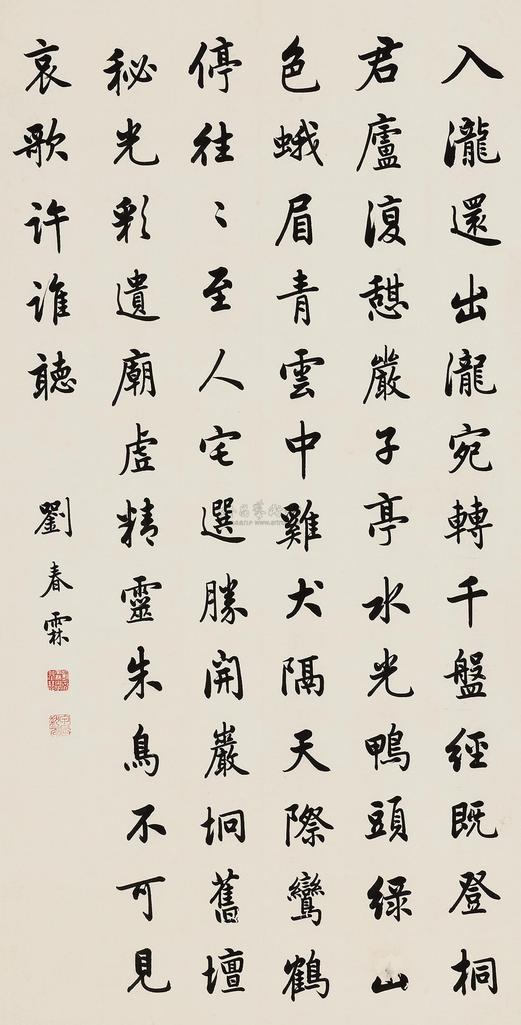 入瀧還出瀧宛轉千盤經既登桐
君廬復憩嚴子亭水光鴨頭綠山
色蛾眉青雲中雞犬隔天際鸞鶴
停往〻至人宅選勝開巖坰舊壇
秘光彩遺廟虛精靈朱鳥不可見
哀歌許誰聽
劉春霖